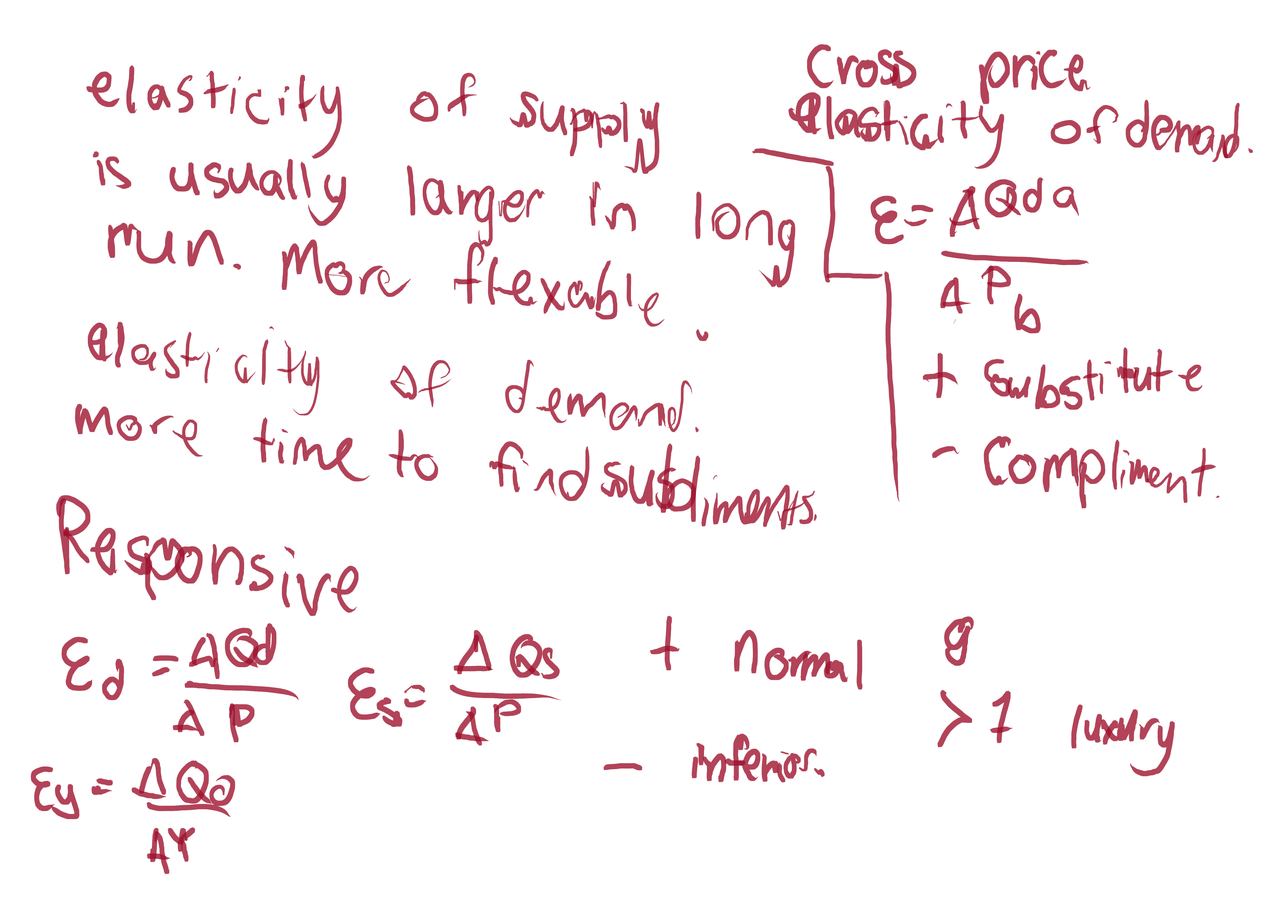 elasticity of supply
is usually larger in long
run. More flexable.
elasticity of demand.
more time to find
Cross price
elasticity of demand.
ε = ΔQda
ΔPb
+ substitute
- Compliment.
Responsive
εd = ΔQd
ΔP
εs = ΔQs
ΔP
εy = ΔQd
ΔY
+ normal
- inferior.
g
>1 luxury